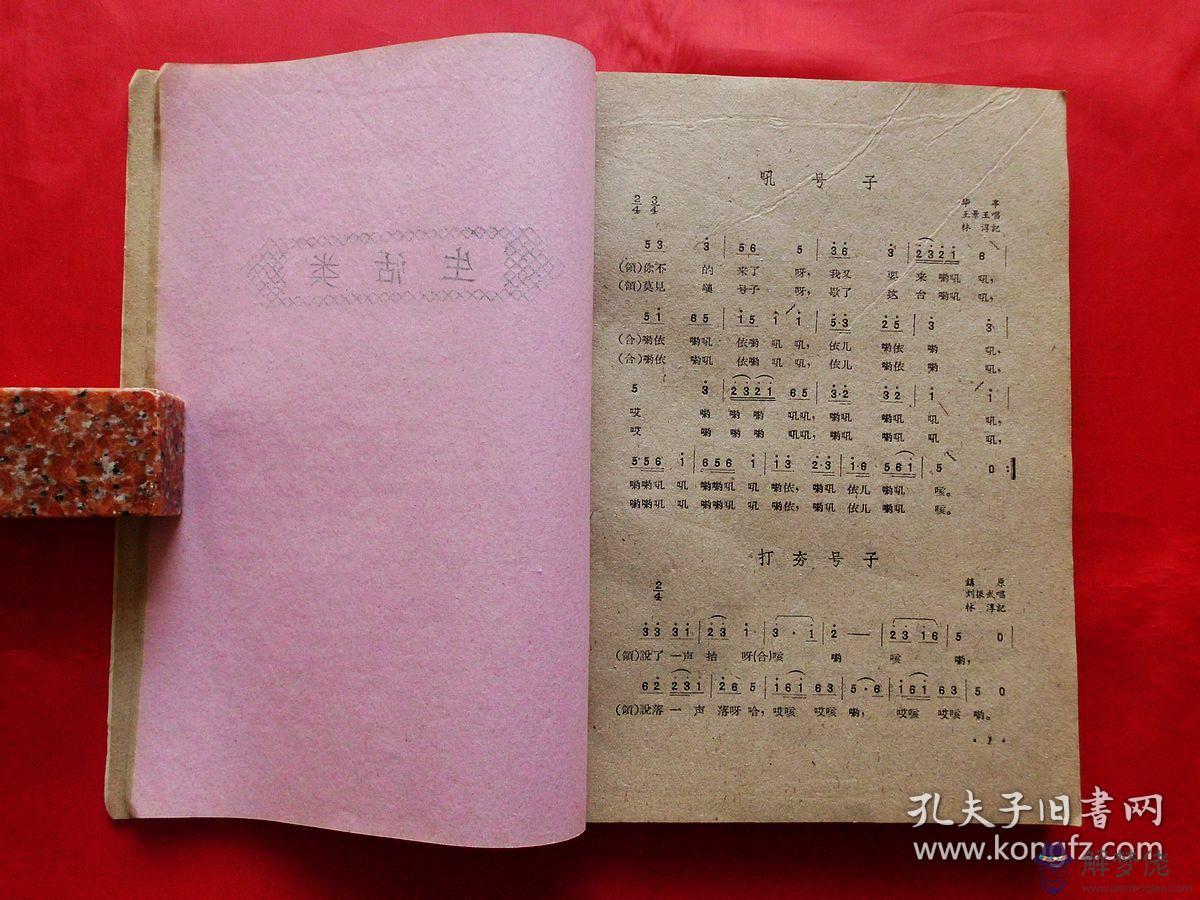 生活类
吼号子
2/4 3/4
华亭
王景玉唱
林淳記
5 3 3 | 5 6 5 | 3 6 3 | 2 3 2 1 6 |
(領)你不的来了呀，我又要来嘞吼吼，
(領)莫見 号子呀，歇了这台嘞吼吼，
5 1 6 5 | 1 5 1 1 | 5·3 2 5 | 3 3 |
(合)嘞依嘞吼依嘞吼吼，依儿嘞依嘞吼，
(合)嘞依嘞吼依嘞吼吼，依儿嘞依嘞吼，
5 3 | 2 3 2 1 6 5 | 3·2 3 2 | 1 1 |
哎嘞嘞嘞吼吼，嘞吼嘞吼吼吼，
哎嘞嘞嘞吼吼，嘞吼嘞吼吼吼，
5 5 6 1 | 6 5 6 1 | 1 3 2·3 | 1·6 5 6 1 | 5 0 :‖
嘞嘞吼吼嘞嘞吼吼嘞依，嘞吼依儿嘞吼咳。
嘞嘞吼吼嘞嘞吼吼嘞依，嘞吼依儿嘞吼咳。
打夯号子
2/4
鎮原
刘振武唱
林淳記
3 3 3 1 | 2 3 1 | 3 · 1 | 2 — | 2 3 1 6 | 5 0 |
(領)說了一声抬呀(合)咳嘞咳嘞，
6 2 2 3 1 | 2 6 5 | 1 6 1 6 3 | 5·6 | 1 6 1 6 3 | 5 0
(領)說落一声落呀哈，哎咳哎咳嘞，哎咳哎咳嘞。
·1·
孔夫子旧書网
www.kongfz.com
解梦佬